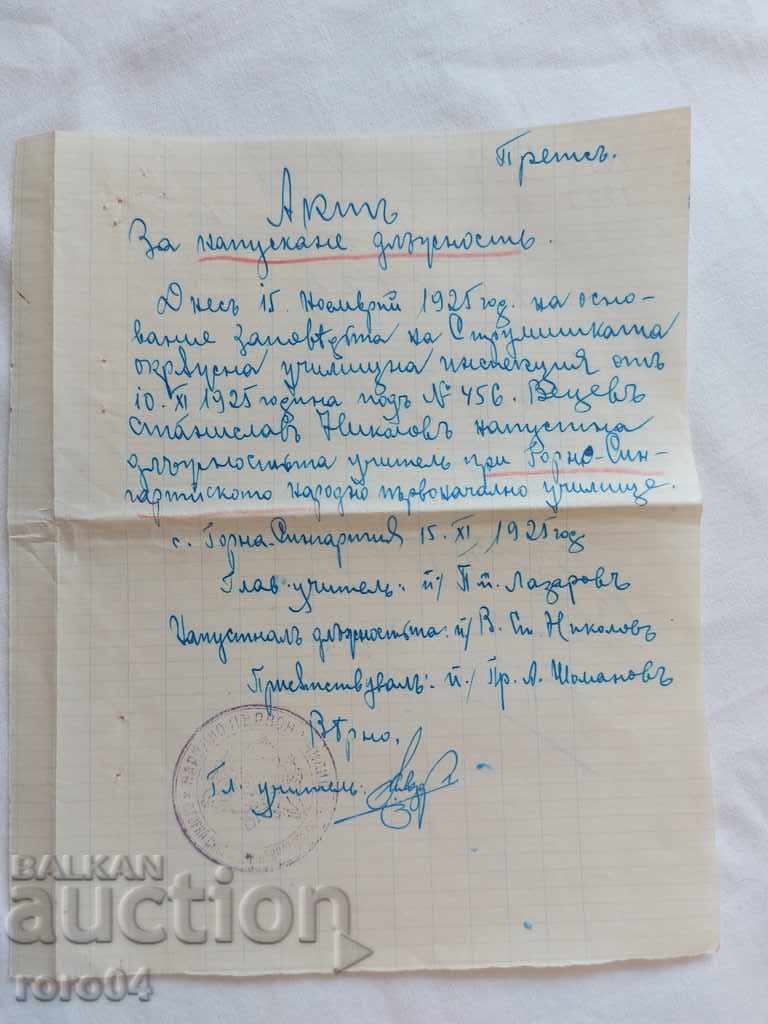 Преписъ.
Актъ
За напускане длъжность.
Днесъ 15. Ноемврий 1925 год. на осно-
вание Заповѣдьта на Струмишката
окръжна училищна инспекция отъ
10. XI 1925 година подъ № 456. Вецевъ
Станиславъ Николовъ напустна
длъжностьта учитель при Горно-Син-
гартийското народно първоначално училище.
с. Горна-Сингартия 15. XI 1925 год
Глав. учитель: п/ Лазаровъ
Напусналъ длъжностьта: п/ В. Ст. Николовъ
Присѫтствувалъ: п./ Пр. А. Шомановъ
Вѣрно,
Гл. учитель:
НАРОДНО ПЪРВОНАЧАЛНО
BALKAN
auction
roro04